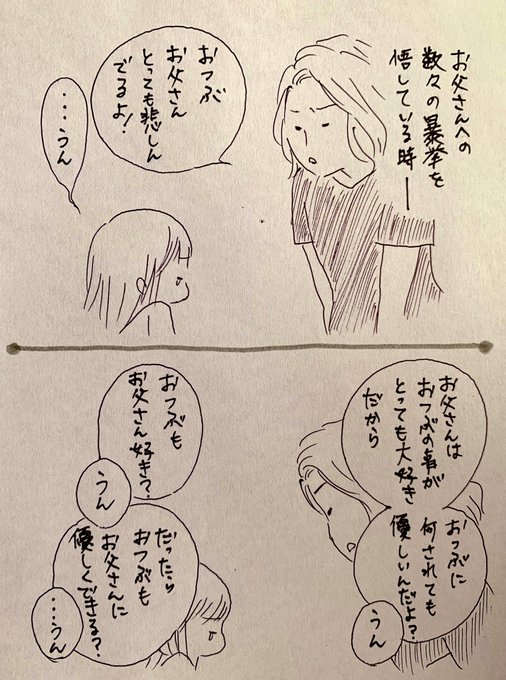 お父さんへの
数々の暴挙を
悟している時―
おつぶ
お父さん
とっても悲しん
でるよ!
・・・うん
お父さんは
おつぶの事が
とっても大好き
だから
おつぶに
何されても
優しいんだよ?
うん
おつぶも
お父さん好き?
うん
だったら
おつぶも
お父さんに
優しくできる?
・・・うん